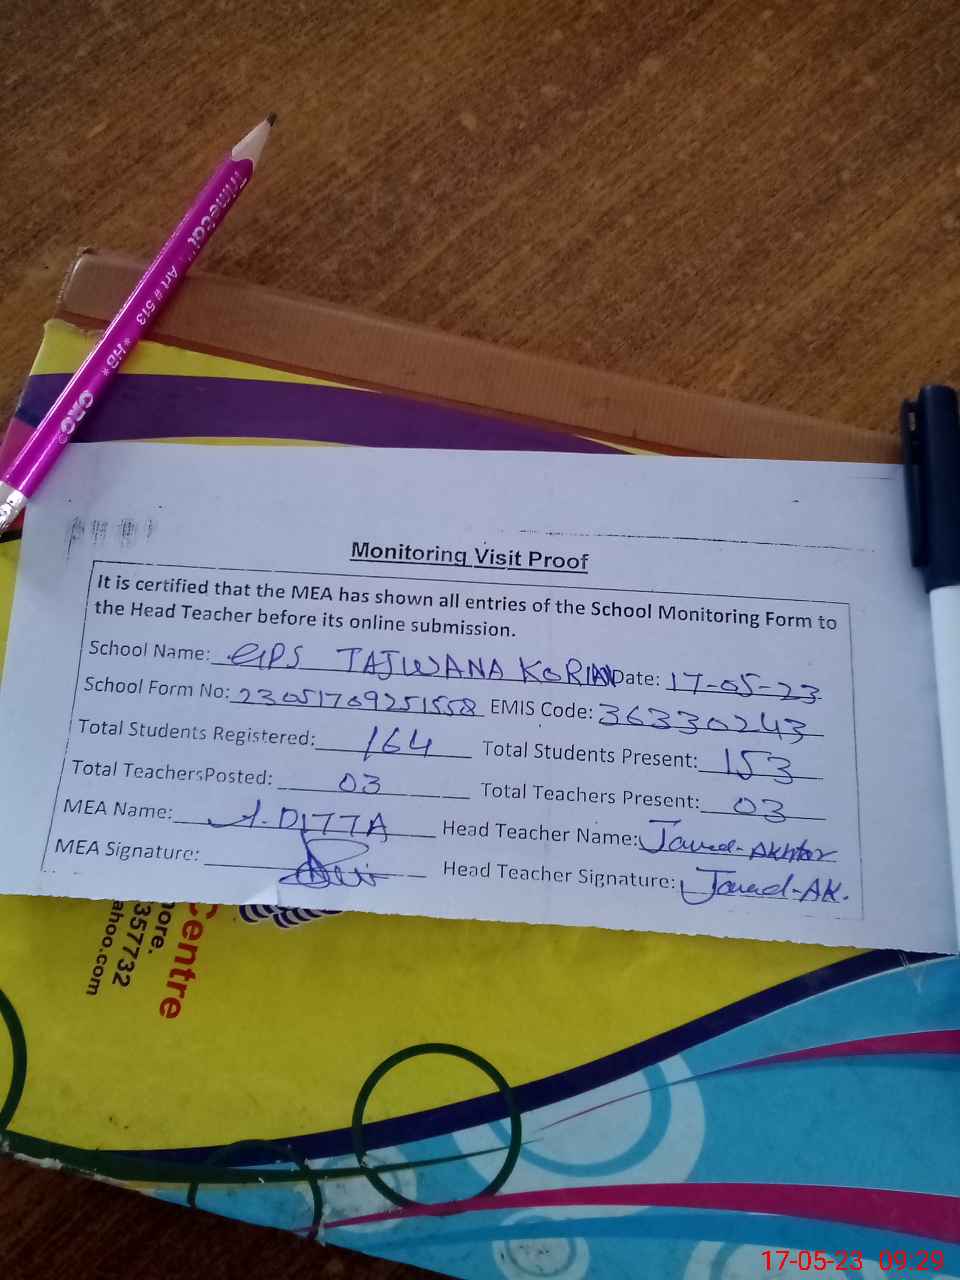 Trimetal Art # 513 *HB* ORO
Monitoring Visit Proof
It is certified that the MEA has shown all entries of the School Monitoring Form to
the Head Teacher before its online submission.
School Name: GPS TAJWANA KORIAN Date: 17-05-23
School Form No: 23051709251558 EMIS Code: 36330243
Total Students Registered: 164 Total Students Present: 153
Total TeachersPosted: 03 Total Teachers Present: 03
MEA Name: A-DITTA Head Teacher Name: Javed-Akhtar
MEA Signature: Head Teacher Signature: Javed-AK.
Centre
ore.
357732
ahoo.com
17-05-23 09:29